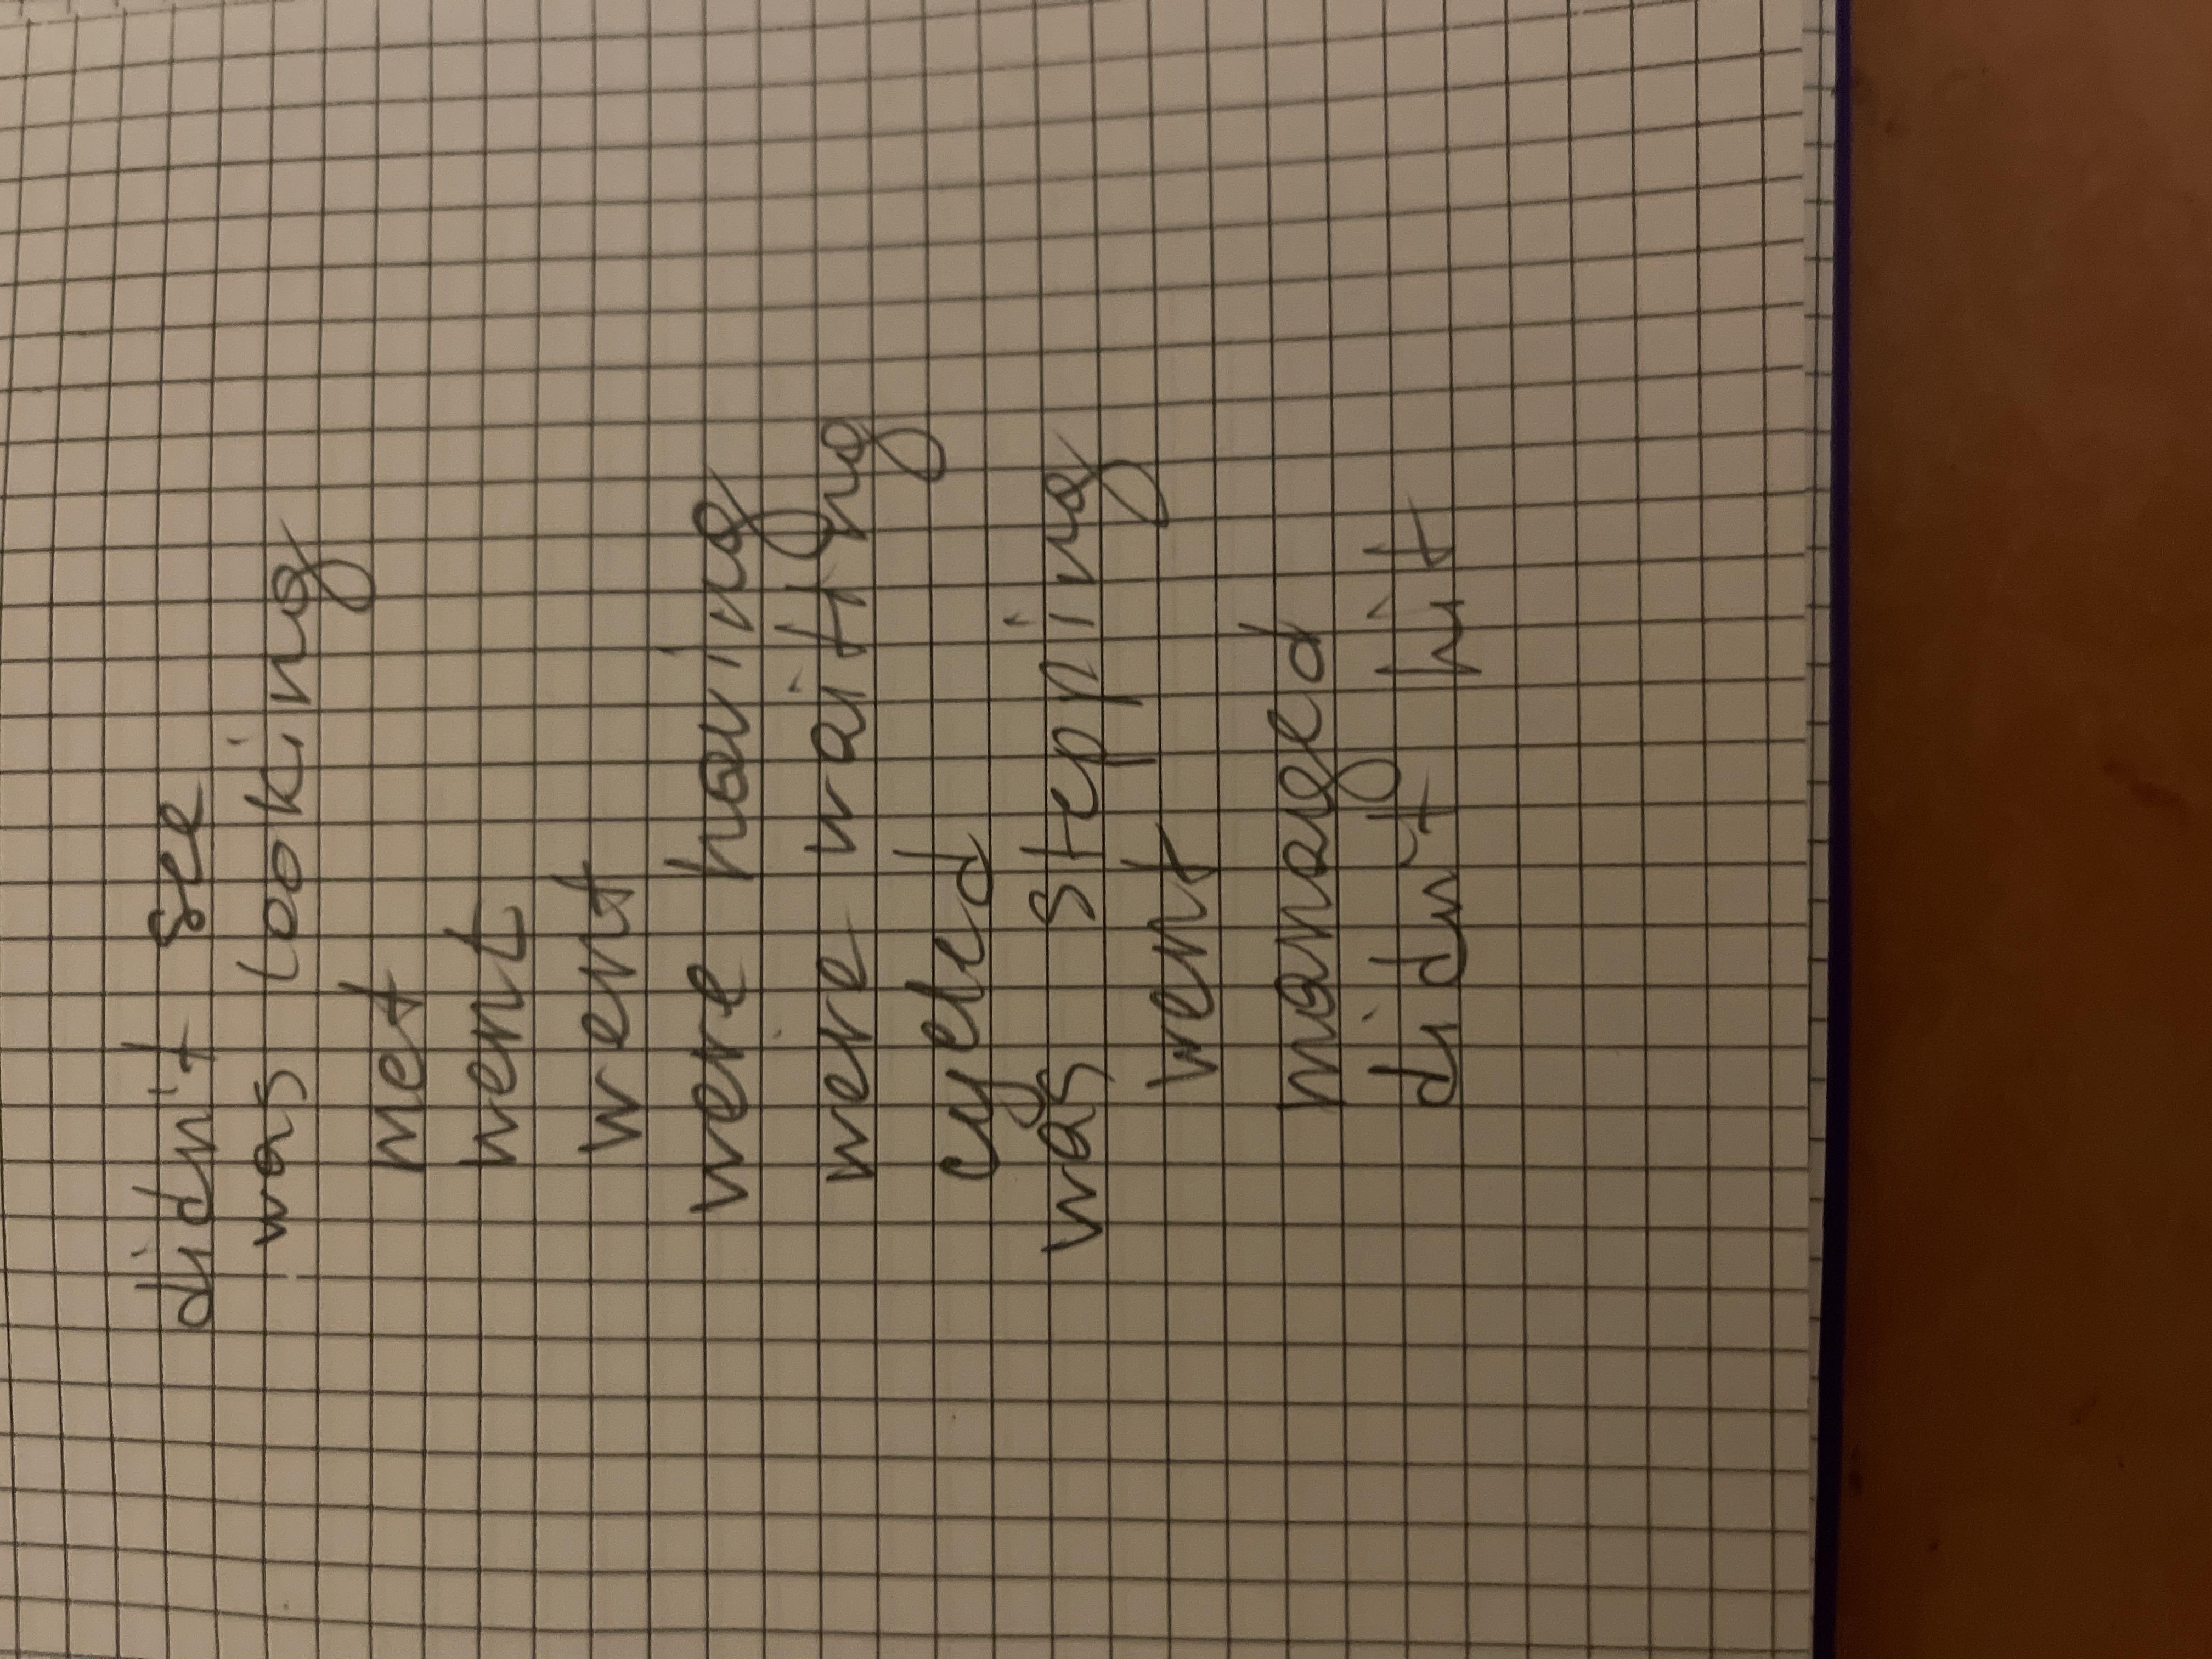 didn't see
was looking
met
went
went
were having
were waiting
cycled
was stepping
went
managed
didn't hit